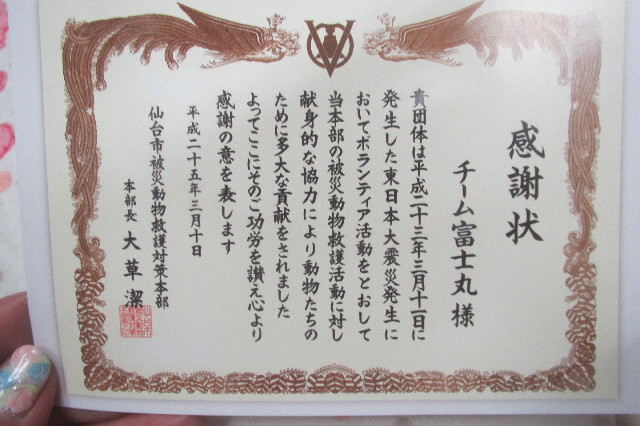 感謝状
チーム富士丸 様
貴団体は平成二十三年三月十一日に
発生した東日本大震災発生に
おいてボランティア活動をとおして
当本部の被災動物救護活動に対し
献身的な協力により動物たちの
ために多大な貢献をされました
よってここにそのご功労を讃え心より
感謝の意を表します
平成二十五年三月十日
仙台市被災動物救護対策本部
本部長 大草 潔